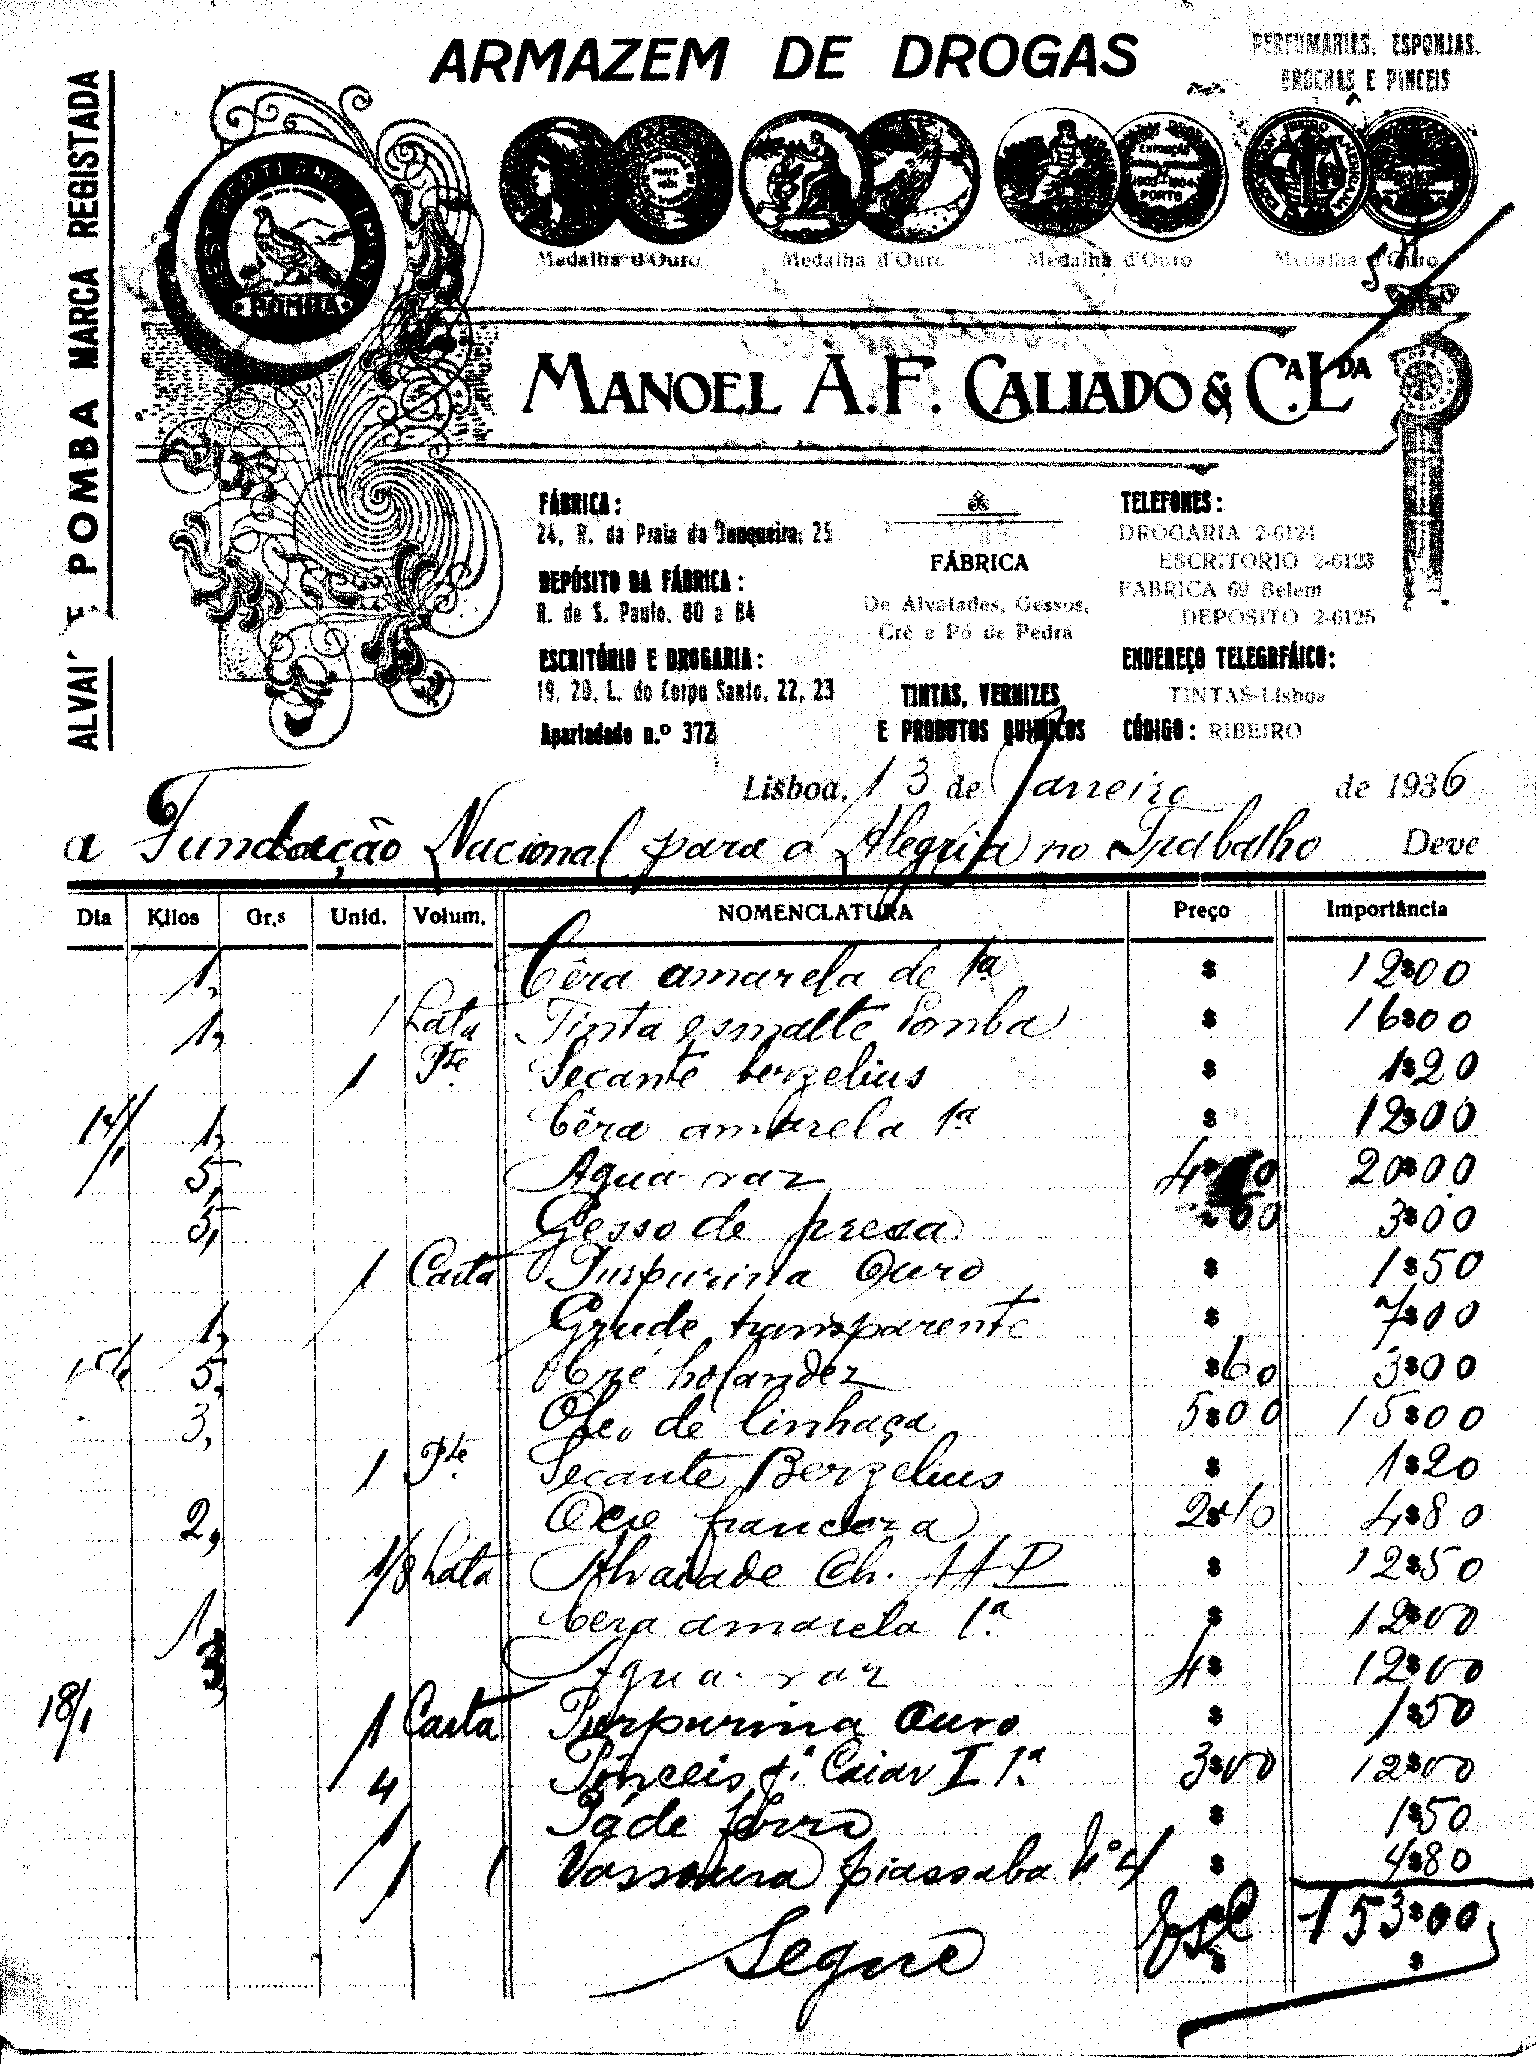 ARMAZEM DE DROGAS
PERFUMARIAS, ESPONJAS,
BROCHAS E PINCEIS
ALVAI E POMBA MARCA REGISTADA
POMBA
Medalha d'Ouro Medalha d'Ouro Medalha d'Ouro Medalha d'Ouro
MANOEL A.F. CALIADO & C.A L.DA
FÁBRICA:
24, R. da Praia da Junqueira, 25
DEPÓSITO DA FÁBRICA:
R. de S. Paulo, 80 a 84
ESCRITÓRIO E DROGARIA:
19, 20, L. do Corpo Santo, 22, 23
Apartadado n.º 372
FÁBRICA
De Alvaiades, Gessos,
Cré e Pó de Pedra
TINTAS, VERNIZES
E PRODUTOS QUIMICOS
TELEFONES:
DROGARIA 2-6124
ESCRITORIO 2-6123
FABRICA 69 Belem
DEPOSITO 2-6125
ENDEREÇO TELEGRFÁICO:
TINTAS-Lisboa
CÓDIGO: RIBEIRO
Lisboa, 13 de Janeiro de 1936
a Fundação Nacional para a Alegria no Trabalho Deve
Dia Kilos Gr.s Unid. Volum. NOMENCLATURA Preço Importância
1, Cêra amarela de 1ª $ 12$00
1, 1 Lata Tinta esmalte Pomba $ 16$00
1 Pte Secante berzelius $ 1$20
14/1 1, Cêra amarela 1ª $ 12$00
5, Agua-raz 20$00
5, Gesso de presa $60 3$00
1 Carta Purpurina Ouro $ 1$50
1, Grude transparente $ 7$00
15/1 5, Cré holandez $60 3$00
3, Oleo de linhaça 5$00 15$00
1 Pte. Secante Berzelius $ 1$20
2, Ocre franceza 2$40 4$80
1/8 Lata Alvaiade Ch. HP $ 12$50
1 Cera amarela 1ª $ 12$00
3, Agua-raz 4$ 12$00
18/1 1 Carta Purpurina Ouro $ 1$50
4 Pinceis p.ª Caiar I 1ª 3$00 12$00
1 Pá de ferro $ 1$50
1 Vassoura piassaba Nº 4 $ 4$80
Segue Esc 153$00